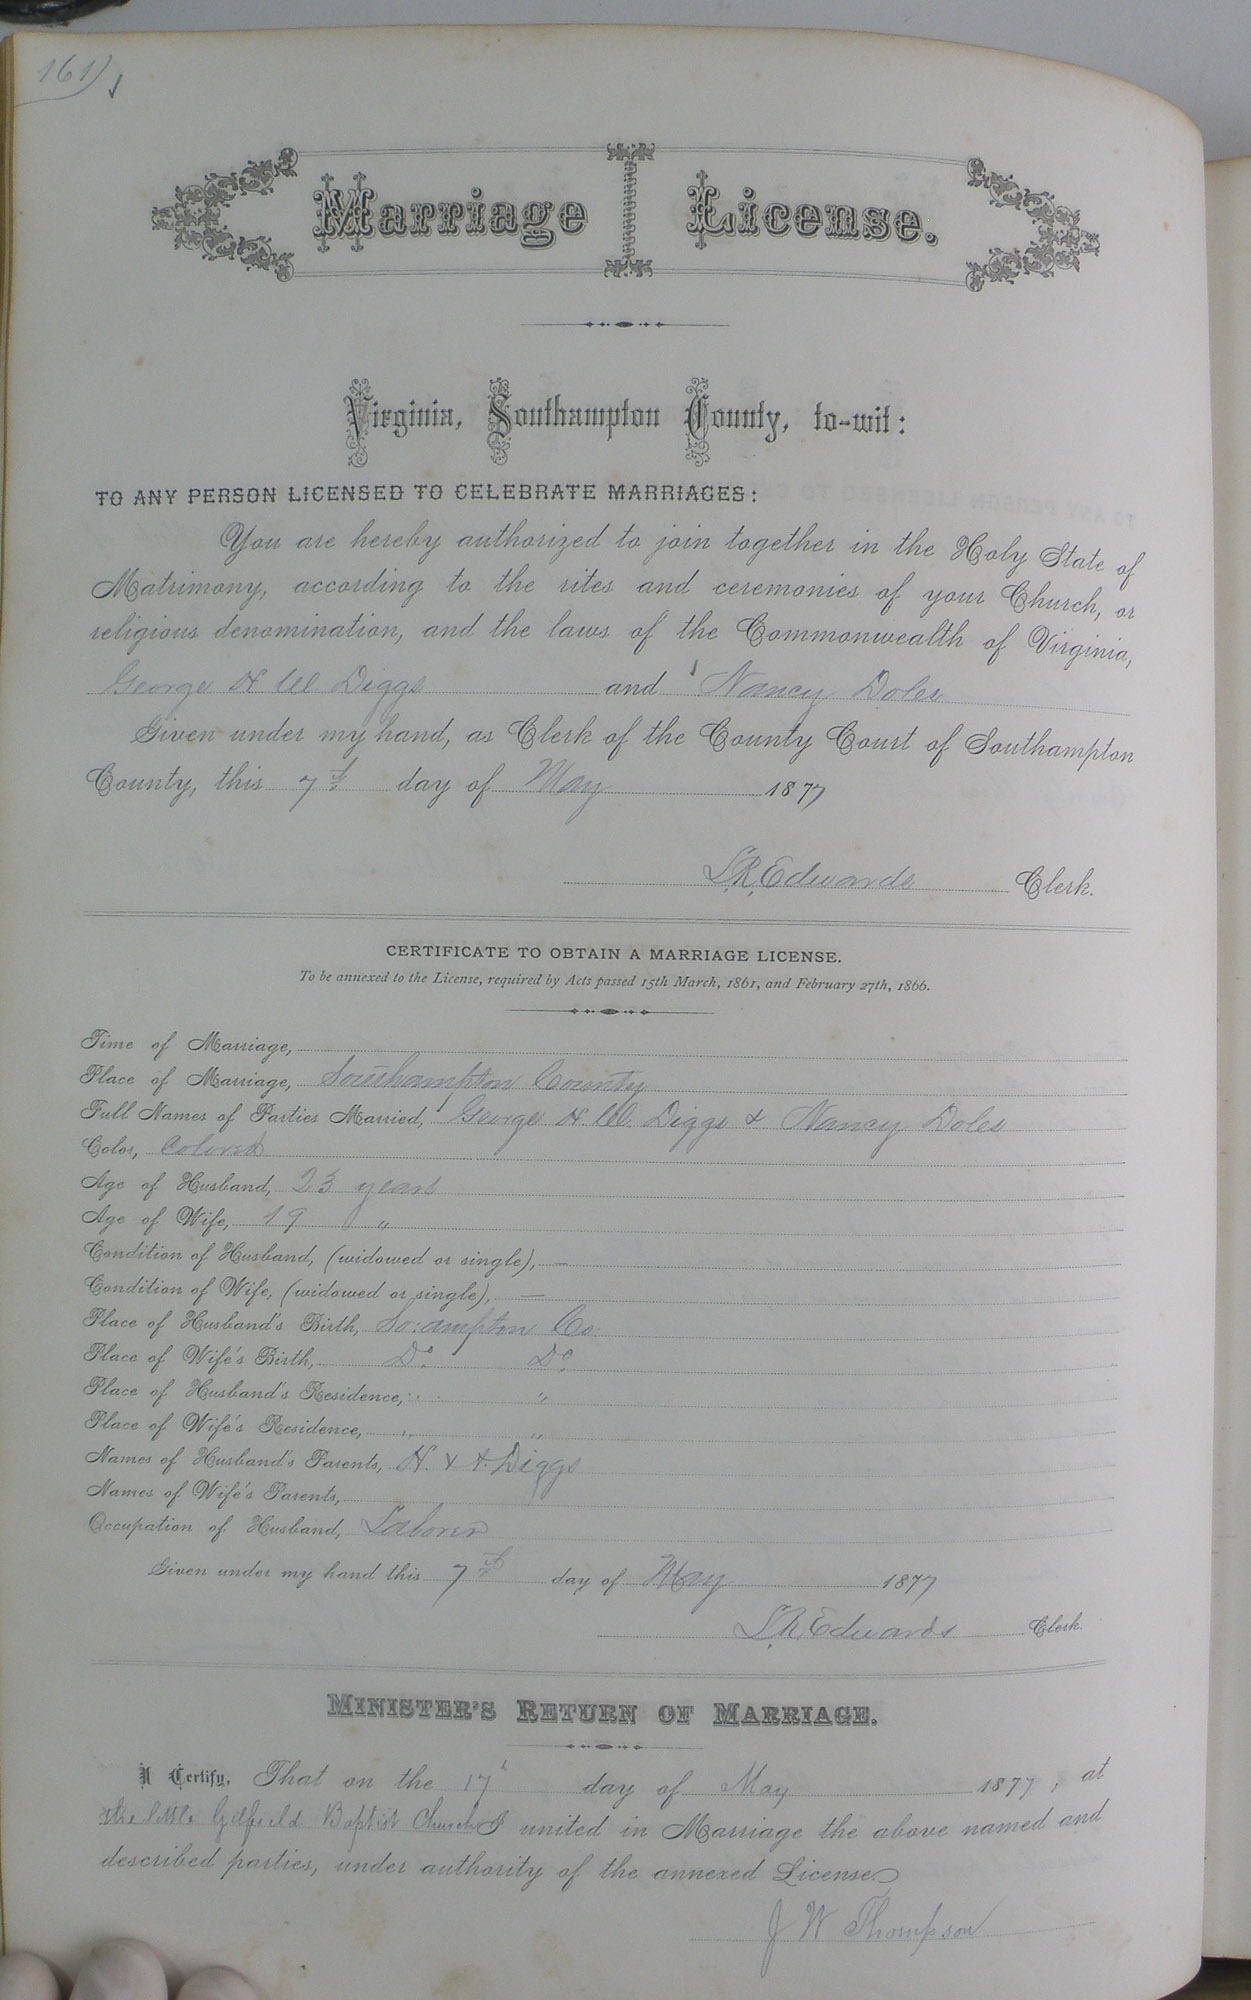 161)
Marriage License.
Virginia, Southampton County, to-wit:
TO ANY PERSON LICENSED TO CELEBRATE MARRIAGES:
You are hereby authorized to join together in the Holy State of
Matrimony, according to the rites and ceremonies of your Church, or
religious denomination, and the laws of the Commonwealth of Virginia,
George H W Diggs and Nancy Doles
Given under my hand, as Clerk of the County Court of Southampton
County, this 7th day of May 1877
L.R. Edwards Clerk.
CERTIFICATE TO OBTAIN A MARRIAGE LICENSE.
To be annexed to the License, required by Acts passed 15th March, 1861, and February 27th, 1866.
Time of Marriage,
Place of Marriage, Southampton County
Full Names of Parties Married, George H. W. Diggs & Nancy Doles
Color, Colored
Age of Husband, 23 years
Age of Wife, 19 "
Condition of Husband, (widowed or single), —
Condition of Wife, (widowed or single), —
Place of Husband's Birth, So:ampton Co:
Place of Wife's Birth, Do Do
Place of Husband's Residence, " "
Place of Wife's Residence, " "
Names of Husband's Parents, H. & A. Diggs
Names of Wife's Parents,
Occupation of Husband, Laborer
Given under my hand this 7th day of May 1877
L.R. Edwards Clerk.
MINISTER'S RETURN OF MARRIAGE.
I Certify, That on the 17th day of May 1877, at
the little Gilfield Baptist Church I united in Marriage the above named and
described parties, under authority of the annexed License.
J W Thompson